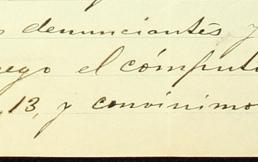 denunciantes y
el cómput
13, y convinimo